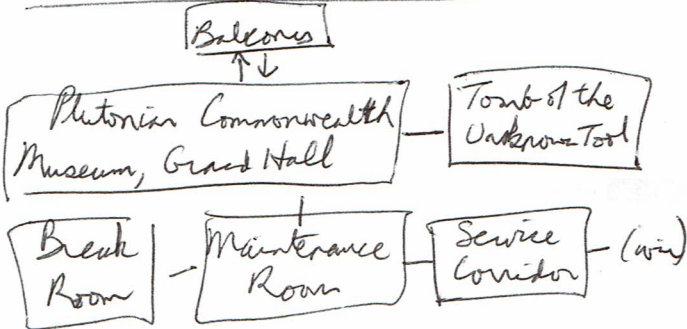 Balcony
Plutonian Commonwealth
Museum, Grand Hall
Tomb of the
Unknown Tool
Break
Room
Maintenance
Room
Service
Corridor
(win)